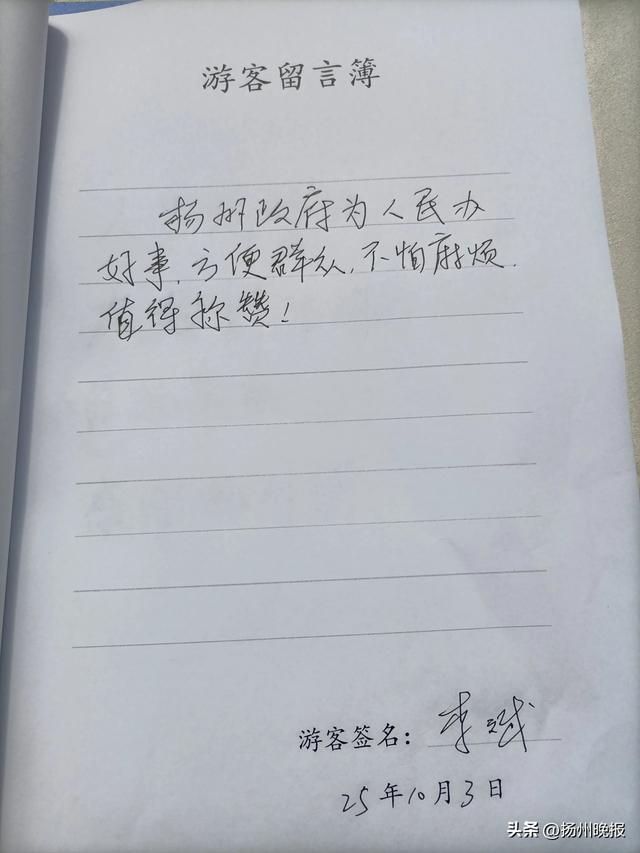 游客留言簿
扬州政府为人民办
好事,方便群众,不怕麻烦.
值得称赞!
游客签名:李斌
25年10月3日
头条 @扬州晚报